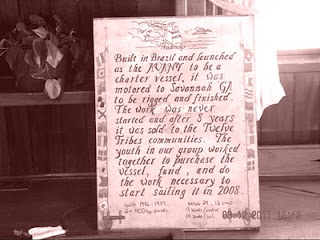 Built in Brazil and launched
as the AVANY to be a
charter vessel, it was
motored to Savannah GA
to be rigged and finished.
The work was never
started and after 8 years
it was sold to the Twelve
Tribes communities. The
youth in our group worked
together to purchase the
vessel, fund, and do
the work necessary to
start sailing it in 2008.